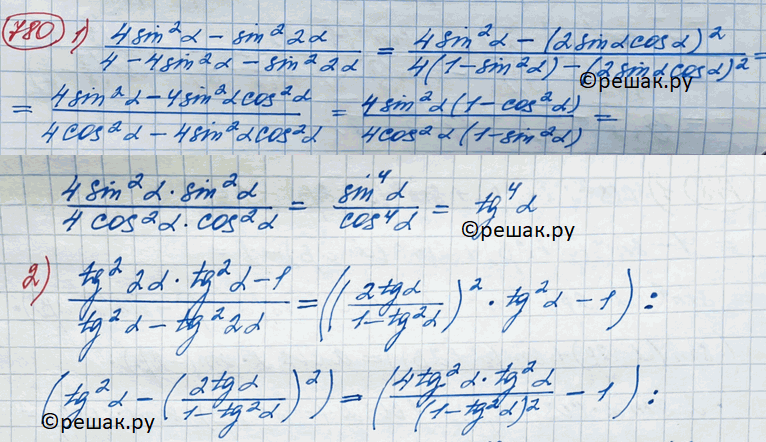 780 1) (4sin²α − sin²2α)/(4 − 4sin²α − sin²2α) = (4sin²α − (2sinαcosα)²)/(4(1−sin²α) − (2sinαcosα)²) =
©решак.ру
= (4sin²α − 4sin²αcos²α)/(4cos²α − 4sin²αcos²α) = (4sin²α(1−cos²α))/(4cos²α(1−sin²α)) =
(4sin²α · sin²α)/(4cos²α · cos²α) = sin⁴α/cos⁴α = tg⁴α
©решак.ру
2) (tg²2α · tg²α − 1)/(tg²α − tg²2α) = ((2tgα/(1−tg²α))² · tg²α − 1) :
(tg²α − (2tgα/(1−tg²α))²) = (4tg²α · tg²α/(1−tg²α)² − 1) :
©решак.ру